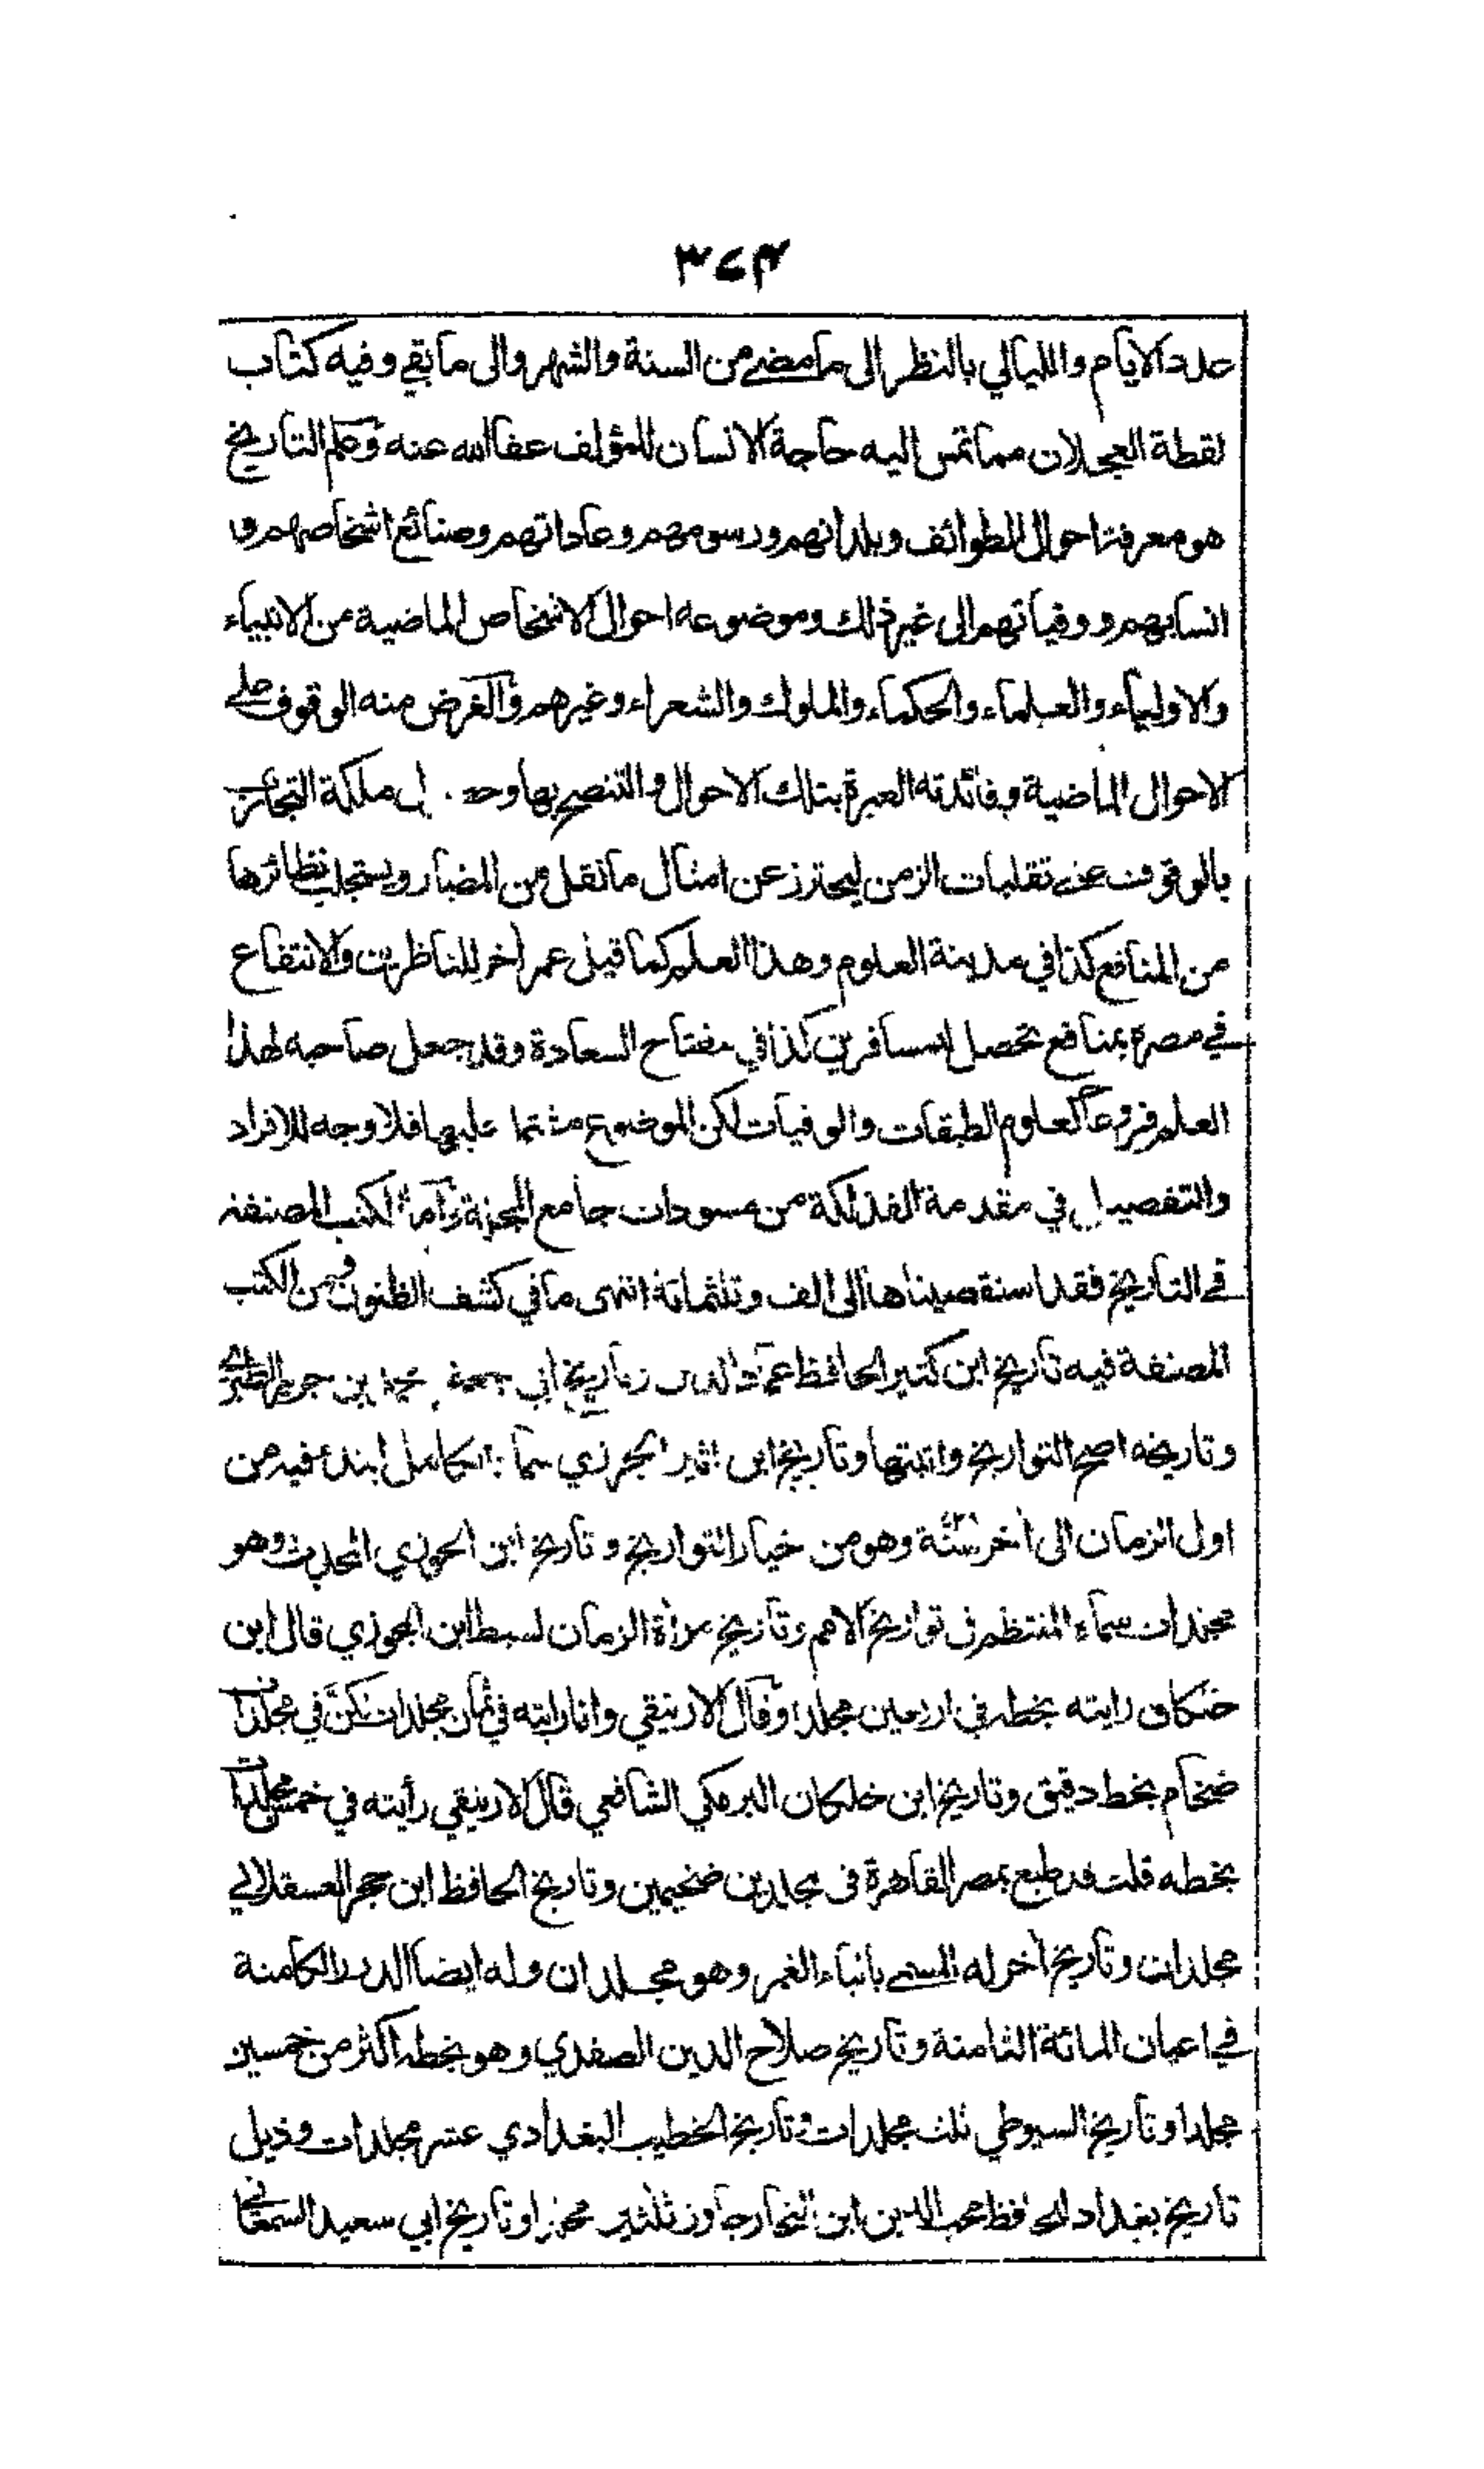 ٣٧٣
عدد الايام والليالي بالنظر الى ما مضى من السنة والشهر والى ما بقي وفيه كتاب
لقطة العجلان مما تمس اليه حاجة الانسان للمؤلف عفا الله عنه وعلم التاريخ
هو معرفة احوال الطوائف وبلدانهم ورسومهم وعاداتهم وصنائع اشخاصهم و
انسابهم ووفياتهم الى غير ذلك وموضوعه احوال الاشخاص الماضية من الانبياء
والاولياء والعلماء والحكماء والملوك والشعراء وغيرهم والغرض منه الوقوف على
الاحوال الماضية وفائدته العبرة بتلك الاحوال والتنصح بها وحصول ملكة التجارب
بالوقوف على تقلبات الزمن ليحترز عن امثال ما نقل من المضار ويستجلب نظائرها
من المنافع كذا في مدينة العلوم وهذا العلم كما قيل عمر اخر للناظرين والانتفاع
في مصره بمنافع تحصل للمسافرين كذا في مفتاح السعادة وقد جعل صاحبه لهذا
العلم فروعا كعلوم الطبقات والوفيات لكن الموضوع مشتمل عليها فلا وجه للافراد
والتفصيل في مقدمة الفذلكة من مسودات جامع المجلة واما الكتب المصنفة
في التاريخ فقد استقصيناها الى الف وثلثمائة انتهى ما في كشف الظنون فمن الكتب
المصنفة فيه تاريخ ابن كثير الحافظ عماد الدين وتاريخ ابي جعفر محمد بن جرير الطبري
وتاريخه اصح التواريخ واثبتها وتاريخ ابن اثير الجزري سماه الكامل ابتدء فيه من
اول الزمان الى اخر سنة ٦٢٨ وهو من خيار التواريخ وتاريخ ابن الجوزي المحدث وهو
مجلدات سماه المنتظم في تواريخ الامم وتاريخ مراة الزمان لسبط ابن الجوزي قال ابن
خلكان رايته بخطه في اربعين مجلدا وقال الارنيقي وانا رايته في ثمان مجلدات لكن في مجلدات
ضخام بخط دقيق وتاريخ ابن خلكان البرمكي الشافعي قال الارنيقي رأيته في خمس مجلدات
بخطه قلت قد طبع بمصر القاهرة في مجلدين ضخيمين وتاريخ الحافظ ابن حجر العسقلاني
مجلدات وتاريخ اخر له المسمى بانباء الغمر وهو مجلدان وله ايضا الدرر الكامنة
في اعيان المائة الثامنة وتاريخ صلاح الدين الصفدي وهو بخطه اكثر من خمسين
مجلدا وتاريخ السيوطي ثلث مجلدات وتاريخ الخطيب البغدادي عشر مجلدات وذيل
تاريخ بغداد للحافظ محب الدين ابن النجار جاوز ثلثين مجلدا وتاريخ ابي سعيد السمعاني